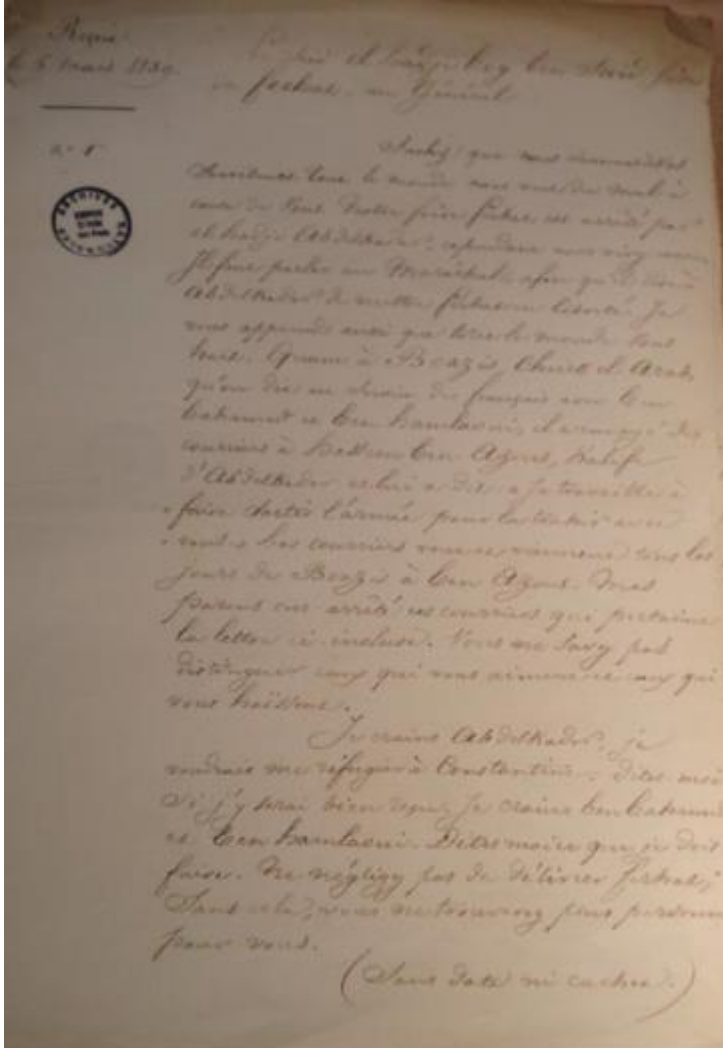 Reçu
le 5 mars 1839
El Bey ben Saïd frère
de ferhat, au Général
n° 1
ARCHIVES NATIONALES
Sachez que nous sommes vos
Serviteurs. Tout le monde nous veut du mal à
cause de vous. Notre frère ferhat est arrêté par
el hadje Abdelkader, cependant
Il faut parler au Maréchal afin qu'il
Abdelkader de mettre ferhat en liberté. Je
vous apprends aussi que tout le monde vous
hait. Quant à Boazis, Cheick el Arab,
qu'on dit au service des français avec ben
et ben hamlaoui, il a envoyé des
courriers à ben Azous, Kalifa
d'Abdelkader et lui a dit : « Je travaille à
« faire sortir l'armée pour la trahir avec
« vous. » Les courriers vont et viennent tous les
jours de Boazis à ben Azous. Mes
parents ont arrêté ces courriers qui portaient
la lettre ci-incluse. Vous ne savez pas
distinguer ceux qui vous aiment et ceux qui
vous haïssent.
Je crains Abdelkader, je
voudrais me réfugier à Constantine. Dites-moi
si j'y serai bien reçu. Je crains ben
et ben hamlaoui. Dites moi ce que je dois
faire. Ne négligez pas de délivrer ferhat;
Sans cela, vous ne trouverez plus personne
pour vous.
(Sans date ni cachet.)